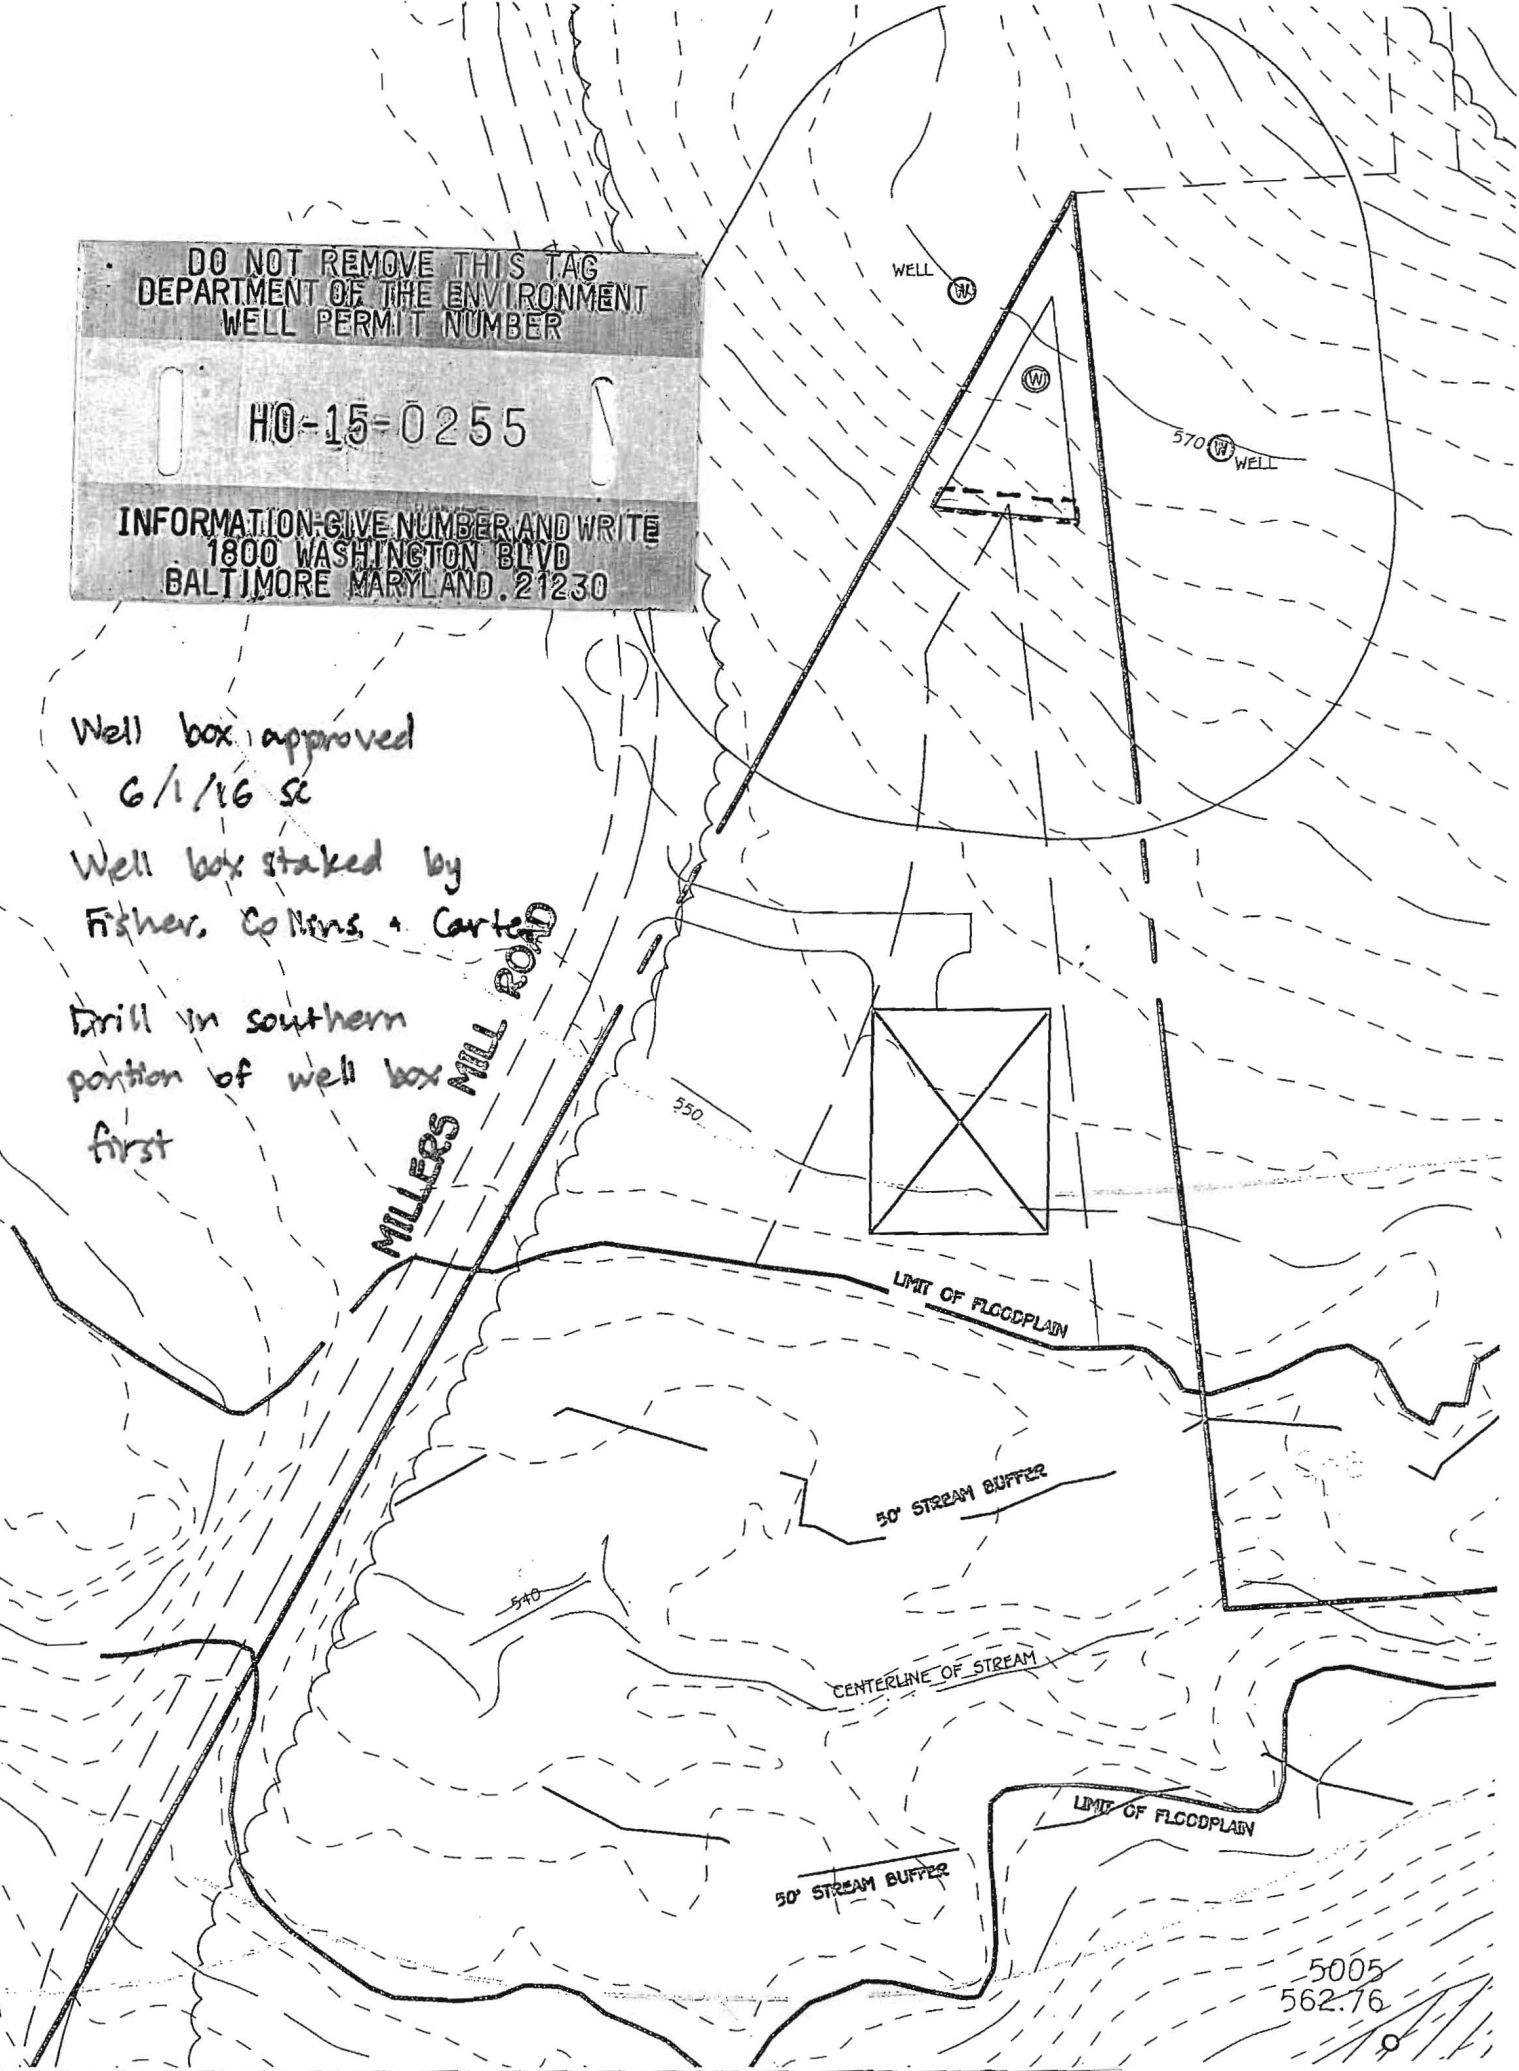 DO NOT REMOVE THIS TAG
DEPARTMENT OF THE ENVIRONMENT
WELL PERMIT NUMBER
HO-15-0255
INFORMATION-GIVE NUMBER AND WRITE
1800 WASHINGTON BLVD
BALTIMORE MARYLAND. 21230
WELL
W
W
570
W
WELL
Well box approved
6/1/16 SC
Well box staked by
Fisher, Collins, + Carter
Drill in southern
portion of well box
first
MILLERS MILL ROAD
550
LIMIT OF FLOODPLAIN
50' STREAM BUFFER
540
CENTERLINE OF STREAM
LIMIT OF FLOODPLAIN
50' STREAM BUFFER
5005
562.76